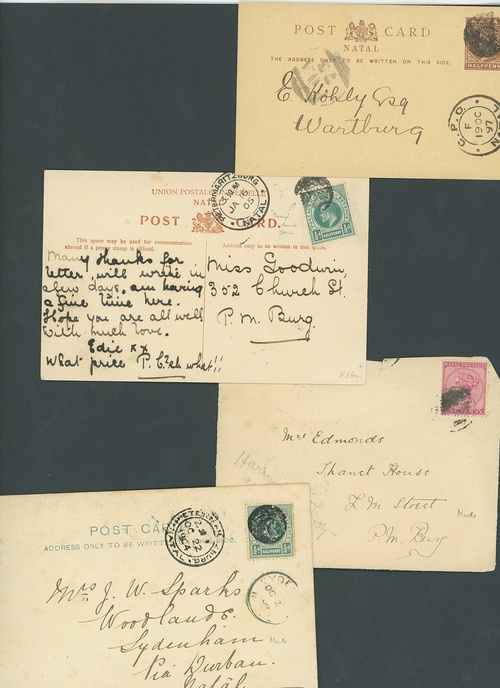 POST CARD
NATAL
THE ADDRESS ONLY TO BE WRITTEN ON THIS SIDE.
NATAL
HALFPENNY
E Kohly Esq
Wartburg
G.P.O.
F
19 OC
97
NATAL
UNION POSTALE UNIVERSELLE
NATAL
POST CARD.
PIETERMARITZBURG
JA
05
NATAL
HALFPENNY
This space may be used for communication
abroad if a penny stamp is affixed.
Address only to be written in this space.
Many thanks for
letter, will write in
a few days. am having
a fine time here.
Hope you are all well
With much love.
Edie xx
What price P. C. eh what!!
Miss Goodwin,
302 Church St.
P. M. Burg.
NATAL POSTAGE
ONE PENNY
Mrs Edmonds
Thanet House
L. M. Street
P.M. Burg
POST CARD
ADDRESS ONLY TO BE WRITTEN THIS SIDE.
PIETERMARITZBURG
OC 22
NATAL
HALFPENNY
Mrs J. W. Sparks
Woodlands.
Sydenham
Via Durban.
Natal